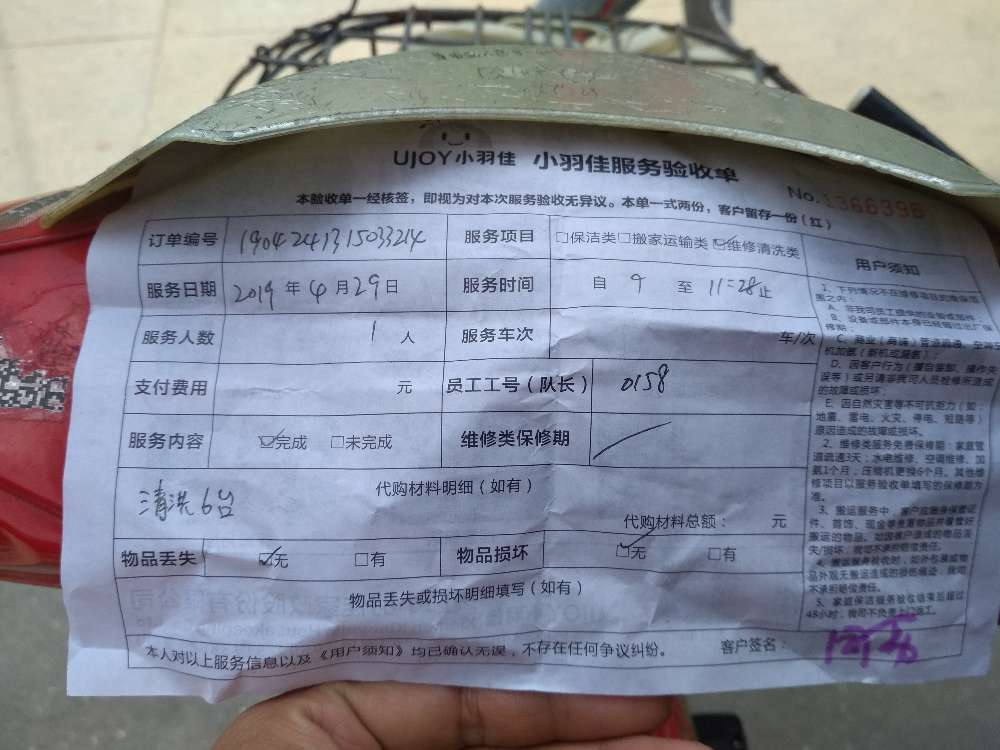 UJOY小羽佳 小羽佳服务验收单
No.1366396
本验收单一经核签，即视为对本次服务验收无异议。本单一式两份，客户留存一份（红）
订单编号 1904241315033214 服务项目 □保洁类□搬家运输类☑维修清洗类
服务日期 2019年4月29日 服务时间 自 9 至 11:28止
服务人数 1人 服务车次 车/次
支付费用 元 员工工号（队长） 0158
服务内容 ☑完成 □未完成 维修类保修期
代购材料明细（如有）
清洗6台
代购材料总额： 元
物品丢失 ☑无 □有 物品损坏 ☑无 □有
物品丢失或损坏明细填写（如有）
本人对以上服务信息以及《用户须知》均已确认无误，不存在任何争议纠纷。 客户签名：
用户须知
1、下列情况不在维修项目的维保范
围之内：
A、非我司员工提供的设备或部件
B、设备或部件本身已经超过出厂保
修期；
D、因客户行为（擅自拆卸、操作失
误等）或另请非我司人员检修所造成
的故障或损坏；
E、因自然灾害等不可抗拒力（如：
地震、雷电、火灾、停电、短路等）
原因造成的故障或损坏。
2、维修类服务免费保修期：家庭管
道疏通3天；水电维修、空调维修、加
氨1个月；压缩机更换6个月。其他维
修项目以服务验收单填写的保修期为
准。
3、搬运服务中，客户应随身保管证
件、首饰、现金等贵重物品并看管好
搬运的物品。如因客户造成的物品丢
失/损坏，我司不承担赔偿责任。
4、搬运服务验收时，如外包装或物
品外观无搬运造成的损伤痕迹，我司
不承担赔偿责任。
5、家庭保洁服务验收结束后超过
48小时，我司不免费上门返工。